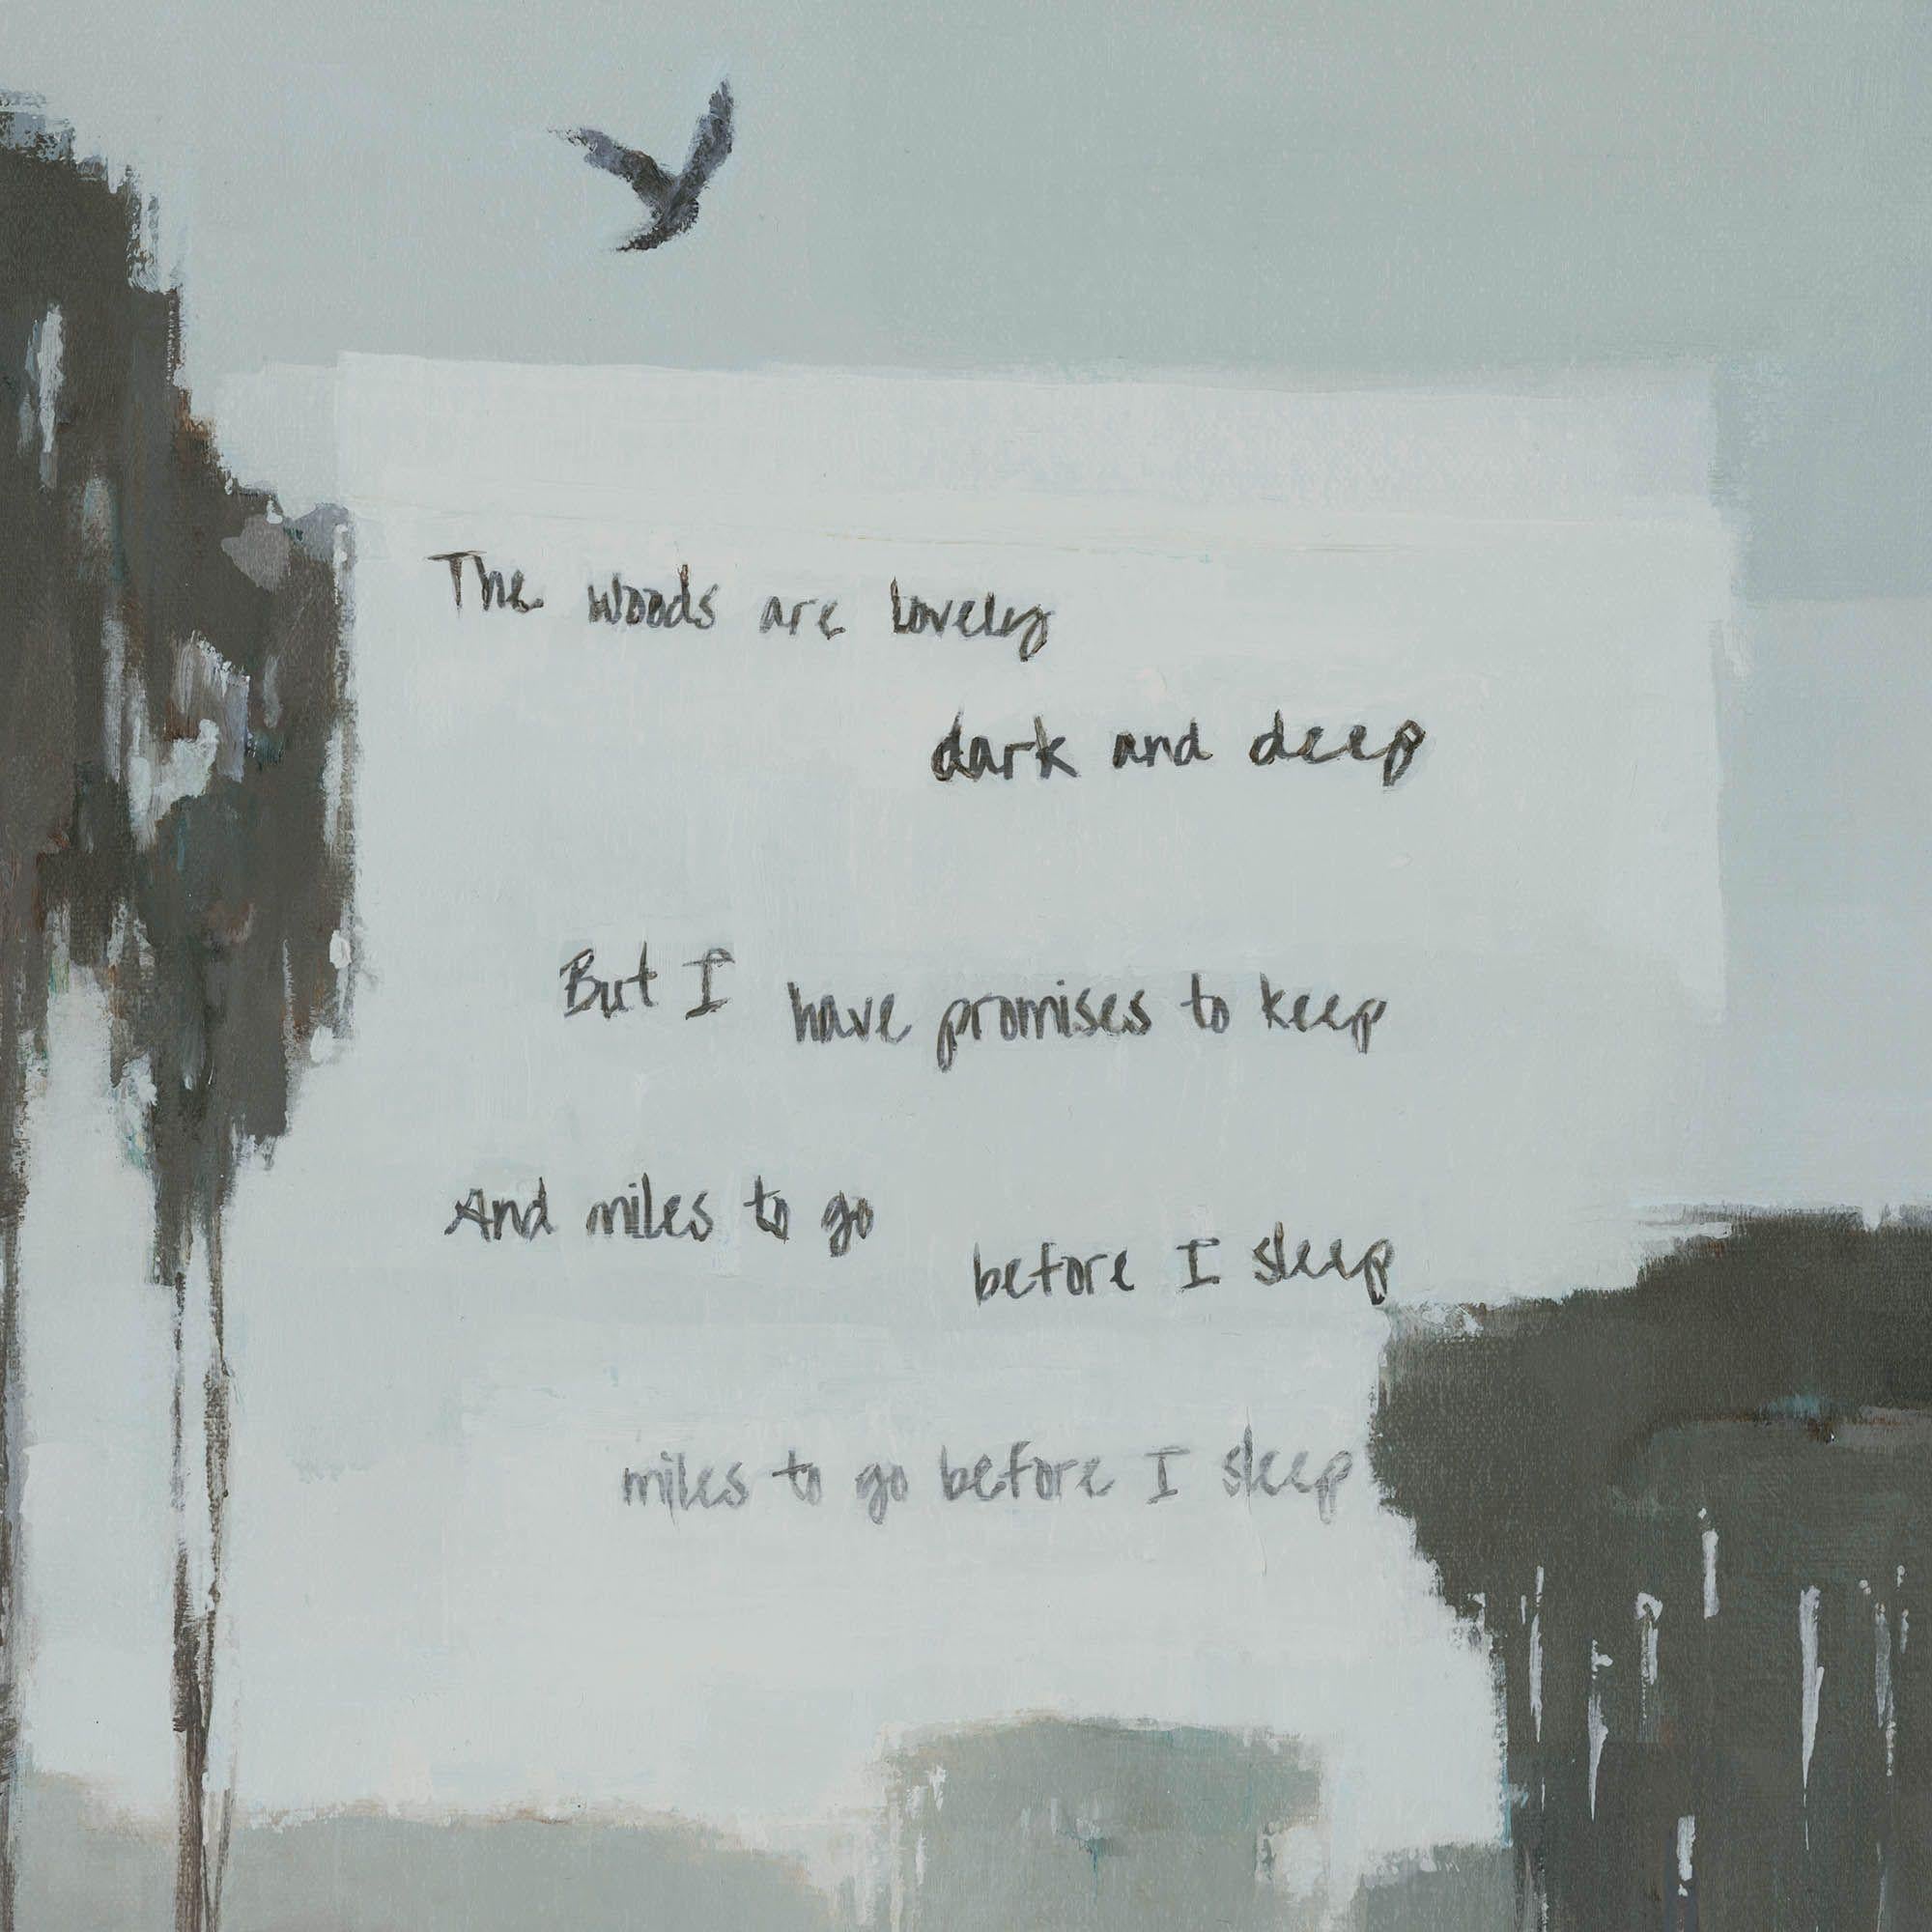 The woods are lovely
dark and deep
But I have promises to keep
And miles to go
before I sleep
miles to go before I sleep